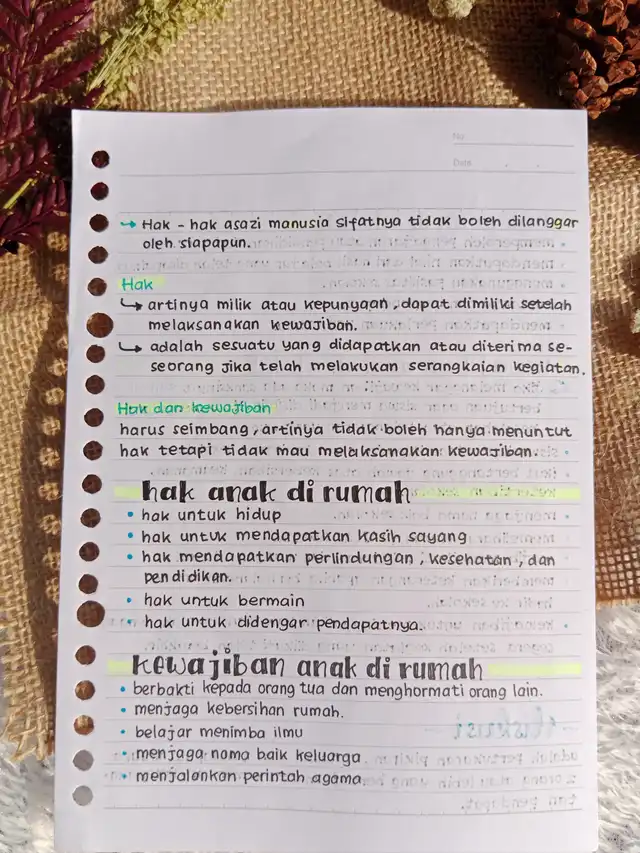 No
Date
→ Hak - hak asazi manusia sifatnya tidak boleh dilanggar
oleh siapapun.
Hak
↳ artinya milik atau kepunyaan, dapat dimiliki setelah
melaksanakan kewajiban.
↳ adalah sesuatu yang didapatkan atau diterima se-
seorang jika telah melakukan serangkaian kegiatan.
Hak dan kewajiban
harus seimbang, artinya tidak boleh hanya menuntut
hak tetapi tidak mau melaksanakan kewajiban.
hak anak di rumah
• hak untuk hidup
• hak untuk mendapatkan kasih sayang
• hak mendapatkan perlindungan, kesehatan, dan
pendidikan.
• hak untuk bermain
• hak untuk didengar pendapatnya.
kewajiban anak di rumah
• berbakti kepada orang tua dan menghormati orang lain.
• menjaga kebersihan rumah.
• belajar menimba ilmu
• menjaga nama baik keluarga
• menjalankan perintah agama